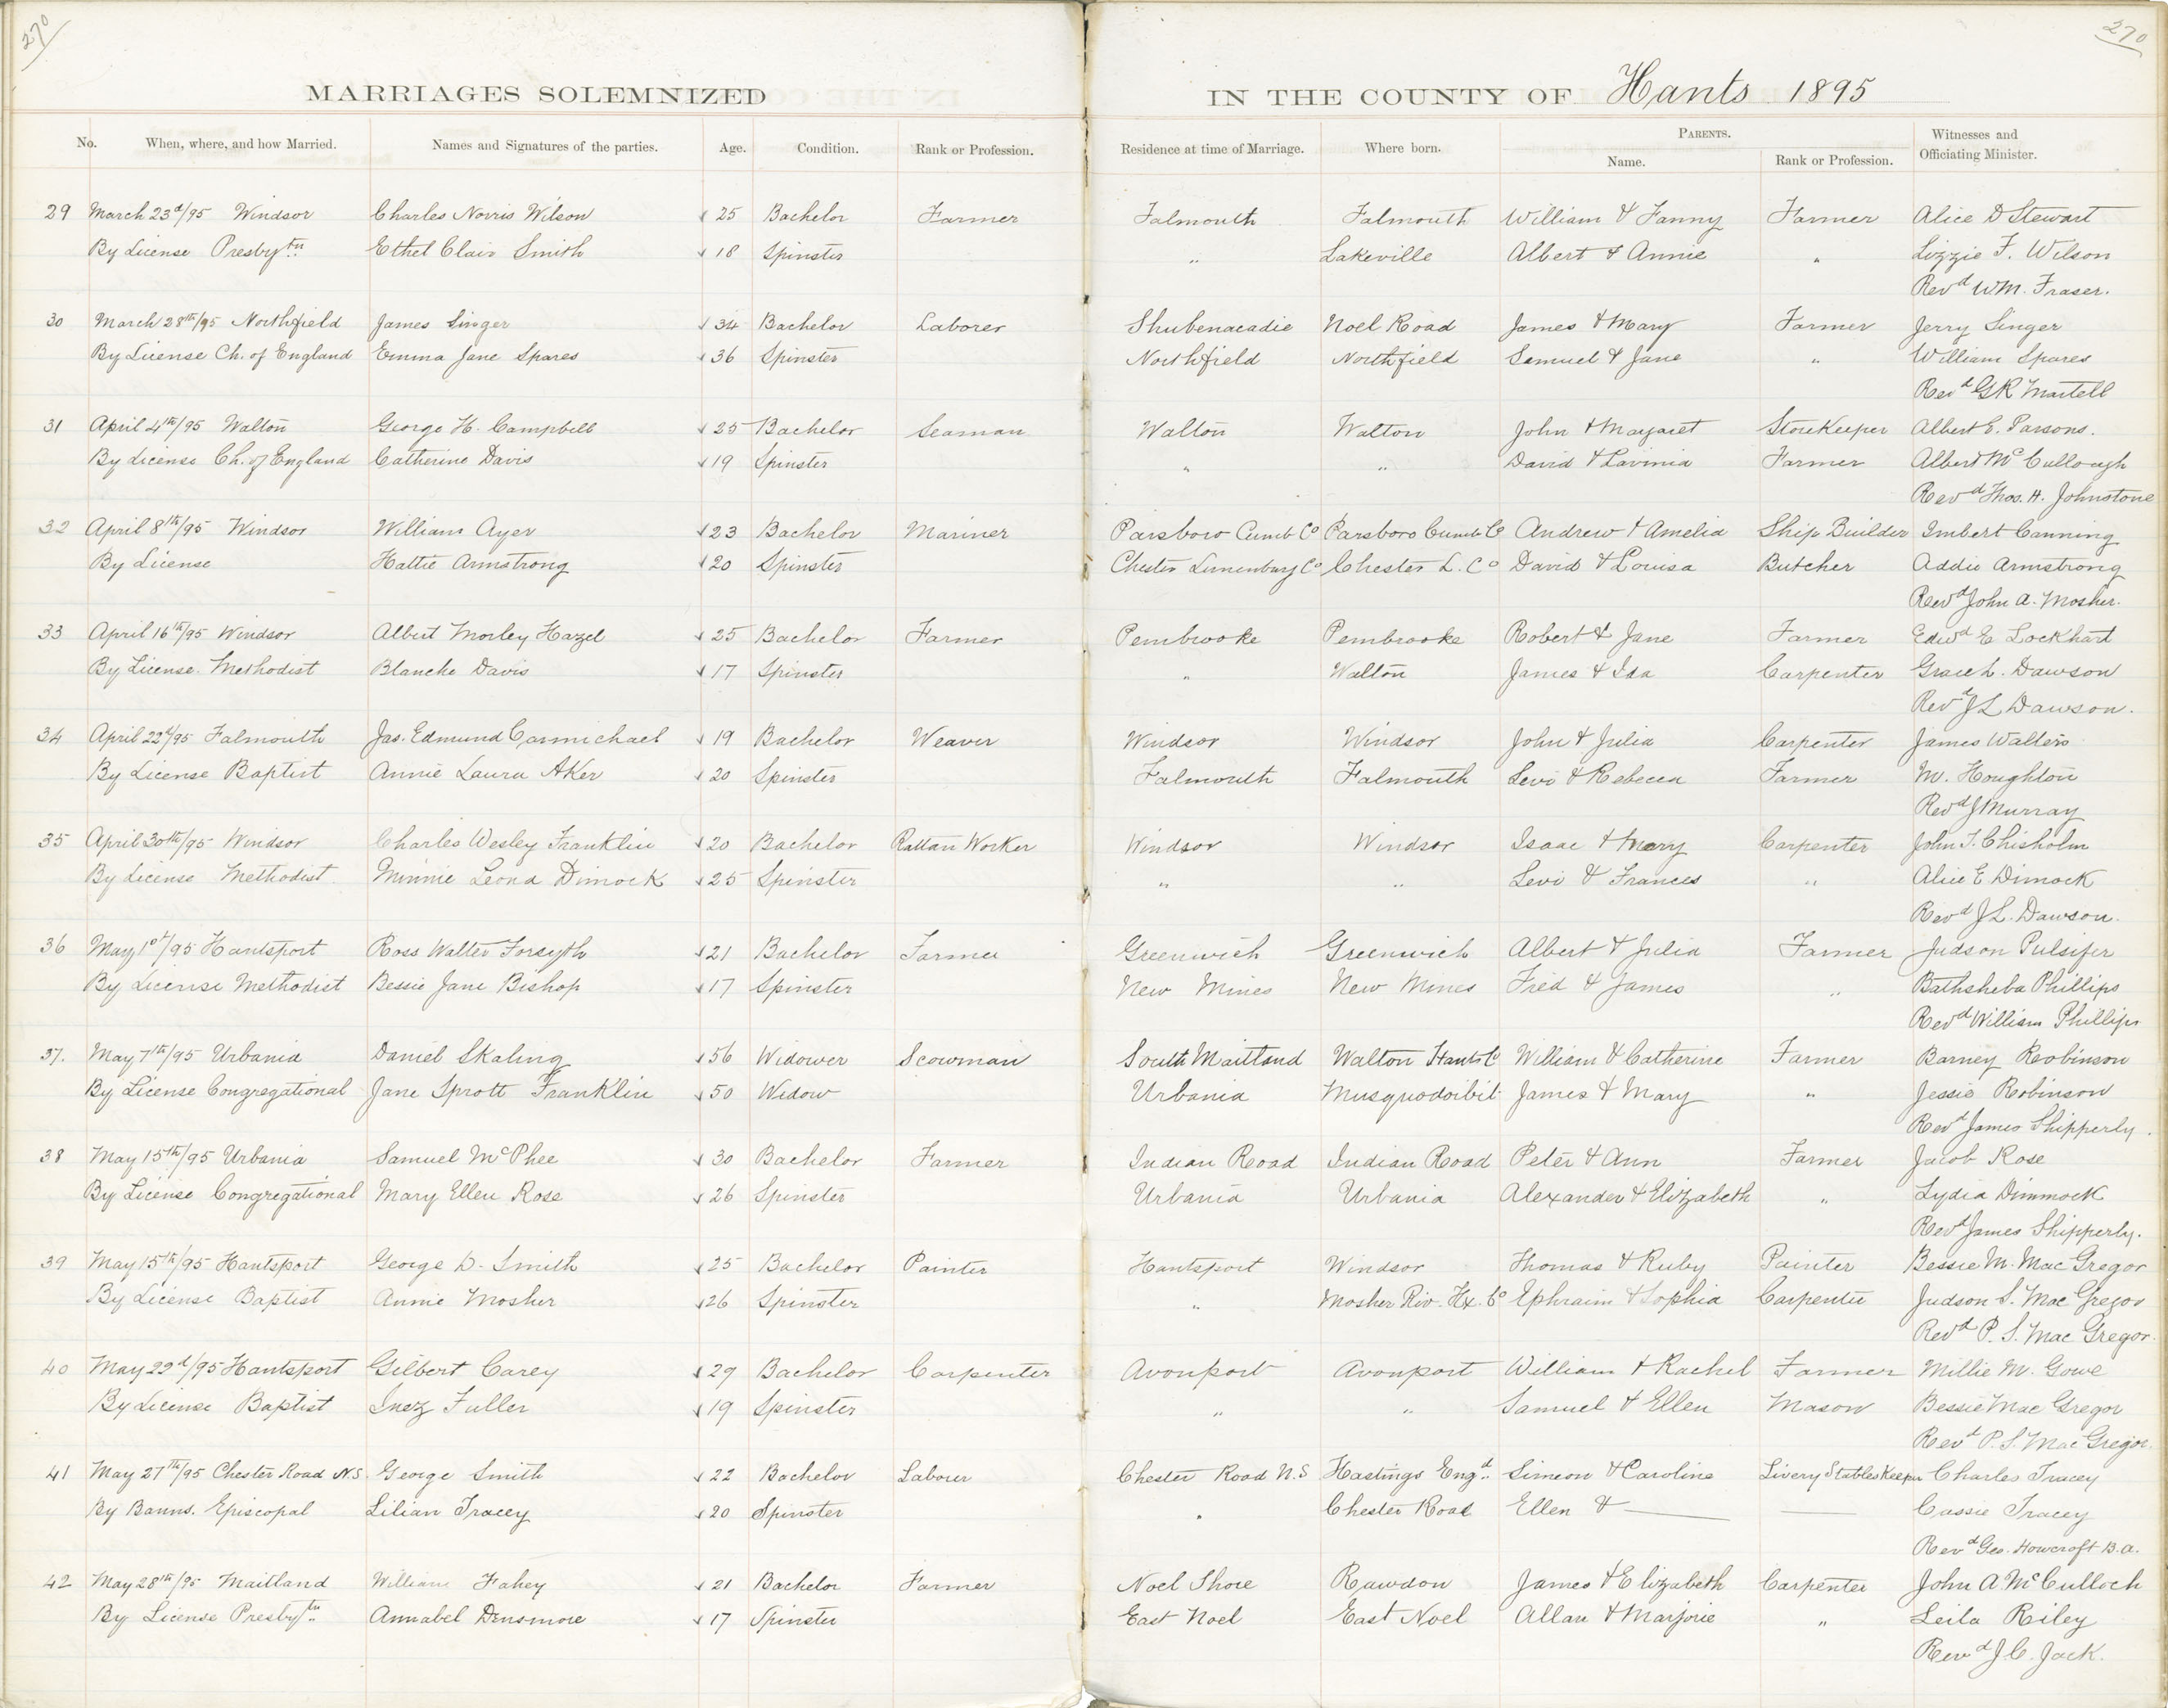 270
270
MARRIAGES SOLEMNIZED IN THE COUNTY OF Hants 1895
No. When, where, and how Married. Names and Signatures of the parties. Age. Condition. Rank or Profession. Residence at time of Marriage. Where born. PARENTS. Name. Rank or Profession. Witnesses and Officiating Minister.
29 March 23d/95 Windsor Charles Norris Wilson 25 Bachelor Farmer Falmouth Falmouth William & Fanny Farmer Alice D Stewart
By License Presbytn Ethel Clair Smith 18 Spinster " Lakeville Albert & Annie " Lizzie F. Wilson
Revd WM. Fraser.
30 March 28th/95 Northfield James Singer 34 Bachelor Laborer Shubenacadie Noel Road James & Mary Farmer Jerry Singer
By License Ch. of England Emma Jane Spares 36 Spinster Northfield Northfield Samuel & Jane " William Spares
Revd GR Martell
31 April 4th/95 Walton George H. Campbell 25 Bachelor Seaman Walton Walton John & Margaret StoreKeeper Albert E. Parsons.
By License Ch. of England Catherine Davis 19 Spinster " " David & Lavinia Farmer Albert McCullough
Revd Thos. H. Johnstone
32 April 8th/95 Windsor William Ayer 23 Bachelor Mariner Parsboro Cumb Co Parsboro Cumb Co Andrew & Amelia Ship Builder Imbert Canning
By License Hattie Armstrong 20 Spinster Chester Lunenburg Co Chester L. Co David & Louisa Butcher Addie Armstrong
Revd John A. Mosher.
33 April 16th/95 Windsor Albert Morley Hazel 25 Bachelor Farmer Pembrooke Pembrooke Robert & Jane Farmer Edwd E Lockhart
By License. Methodist Blanche Davis 17 Spinster " Walton James & Ida Carpenter Grace L. Dawson
Revd J L Dawson.
34 April 22d/95 Falmouth Jas. Edmund Carmichael 19 Bachelor Weaver Windsor Windsor John & Julia Carpenter James Walters
By License Baptist Annie Laura AKer 20 Spinster Falmouth Falmouth Levi & Rebecca Farmer M. Houghton
Revd J Murray
35 April 30th/95 Windsor Charles Wesley Franklin 20 Bachelor Rattan Worker Windsor Windsor Isaac & Mary Carpenter John T. Chisholm
By License Methodist Minnie Leona Dimock 25 Spinster " " Levi & Frances " Alice E Dimock
Revd J L. Dawson.
36 May 1st/95 Hantsport Ross Walter Forsyth 21 Bachelor Farmer Greenwich Greenwich Albert & Julia Farmer Judson Pulsifer
By License Methodist Bessie Jane Bishop 17 Spinster New Mines New Mines Fred & James " Bathsheba Phillips
Revd William Phillips
37. May 7th/95 Urbania Daniel Skaling 56 Widower Scowman South Maitland Walton Hants C William & Catherine Farmer Barney Robinson
By License Congregational Jane Sprott Franklin 50 Widow Urbania Musquodoibit James & Mary " Jessie Robinson
Revd James Shipperly.
38 May 15th/95 Urbania Samuel McPhee 30 Bachelor Farmer Indian Road Indian Road Peter & Ann Farmer Jacob Rose
By License Congregational Mary Ellen Rose 26 Spinster Urbania Urbania Alexander & Elizabeth " Lydia Dimmock
Revd James Shipperly.
39 May 15th/95 Hantsport George D. Smith 25 Bachelor Painter Hantsport Windsor Thomas & Ruby Painter Bessie M. Mac Gregor
By License Baptist Annie Mosher 26 Spinster " Mosher Riv. Hx. Co Ephraim & Sophia Carpenter Judson S. Mac Gregor
Revd P. S. Mac Gregor.
40 May 22d/95 Hantsport Gilbert Carey 29 Bachelor Carpenter Avonport Avonport William & Rachel Farmer Millie M. Gowe
By License Baptist Inez Fuller 19 Spinster " " Samuel & Ellen Mason Bessie Mac Gregor
Revd P. S. Mac Gregor.
41 May 27th/95 Chester Road N.S. George Smith 22 Bachelor Labourer Chester Road N.S Hastings Engd. Simeon & Caroline Livery Stables Keeper Charles Tracey
By Banns. Episcopal Lilian Tracey 20 Spinster " Chester Road Ellen & — — Cassie Tracey
Revd Geo. Howcroft B.A.
42 May 28th/95 Maitland William Fahey 21 Bachelor Farmer Noel Shore Rawdon James & Elizabeth Carpenter John A. McCulloch
By License Presbytn Annabel Densmore 17 Spinster East Noel East Noel Allan & Marjorie " Leila Riley
Revd J. C. Jack.